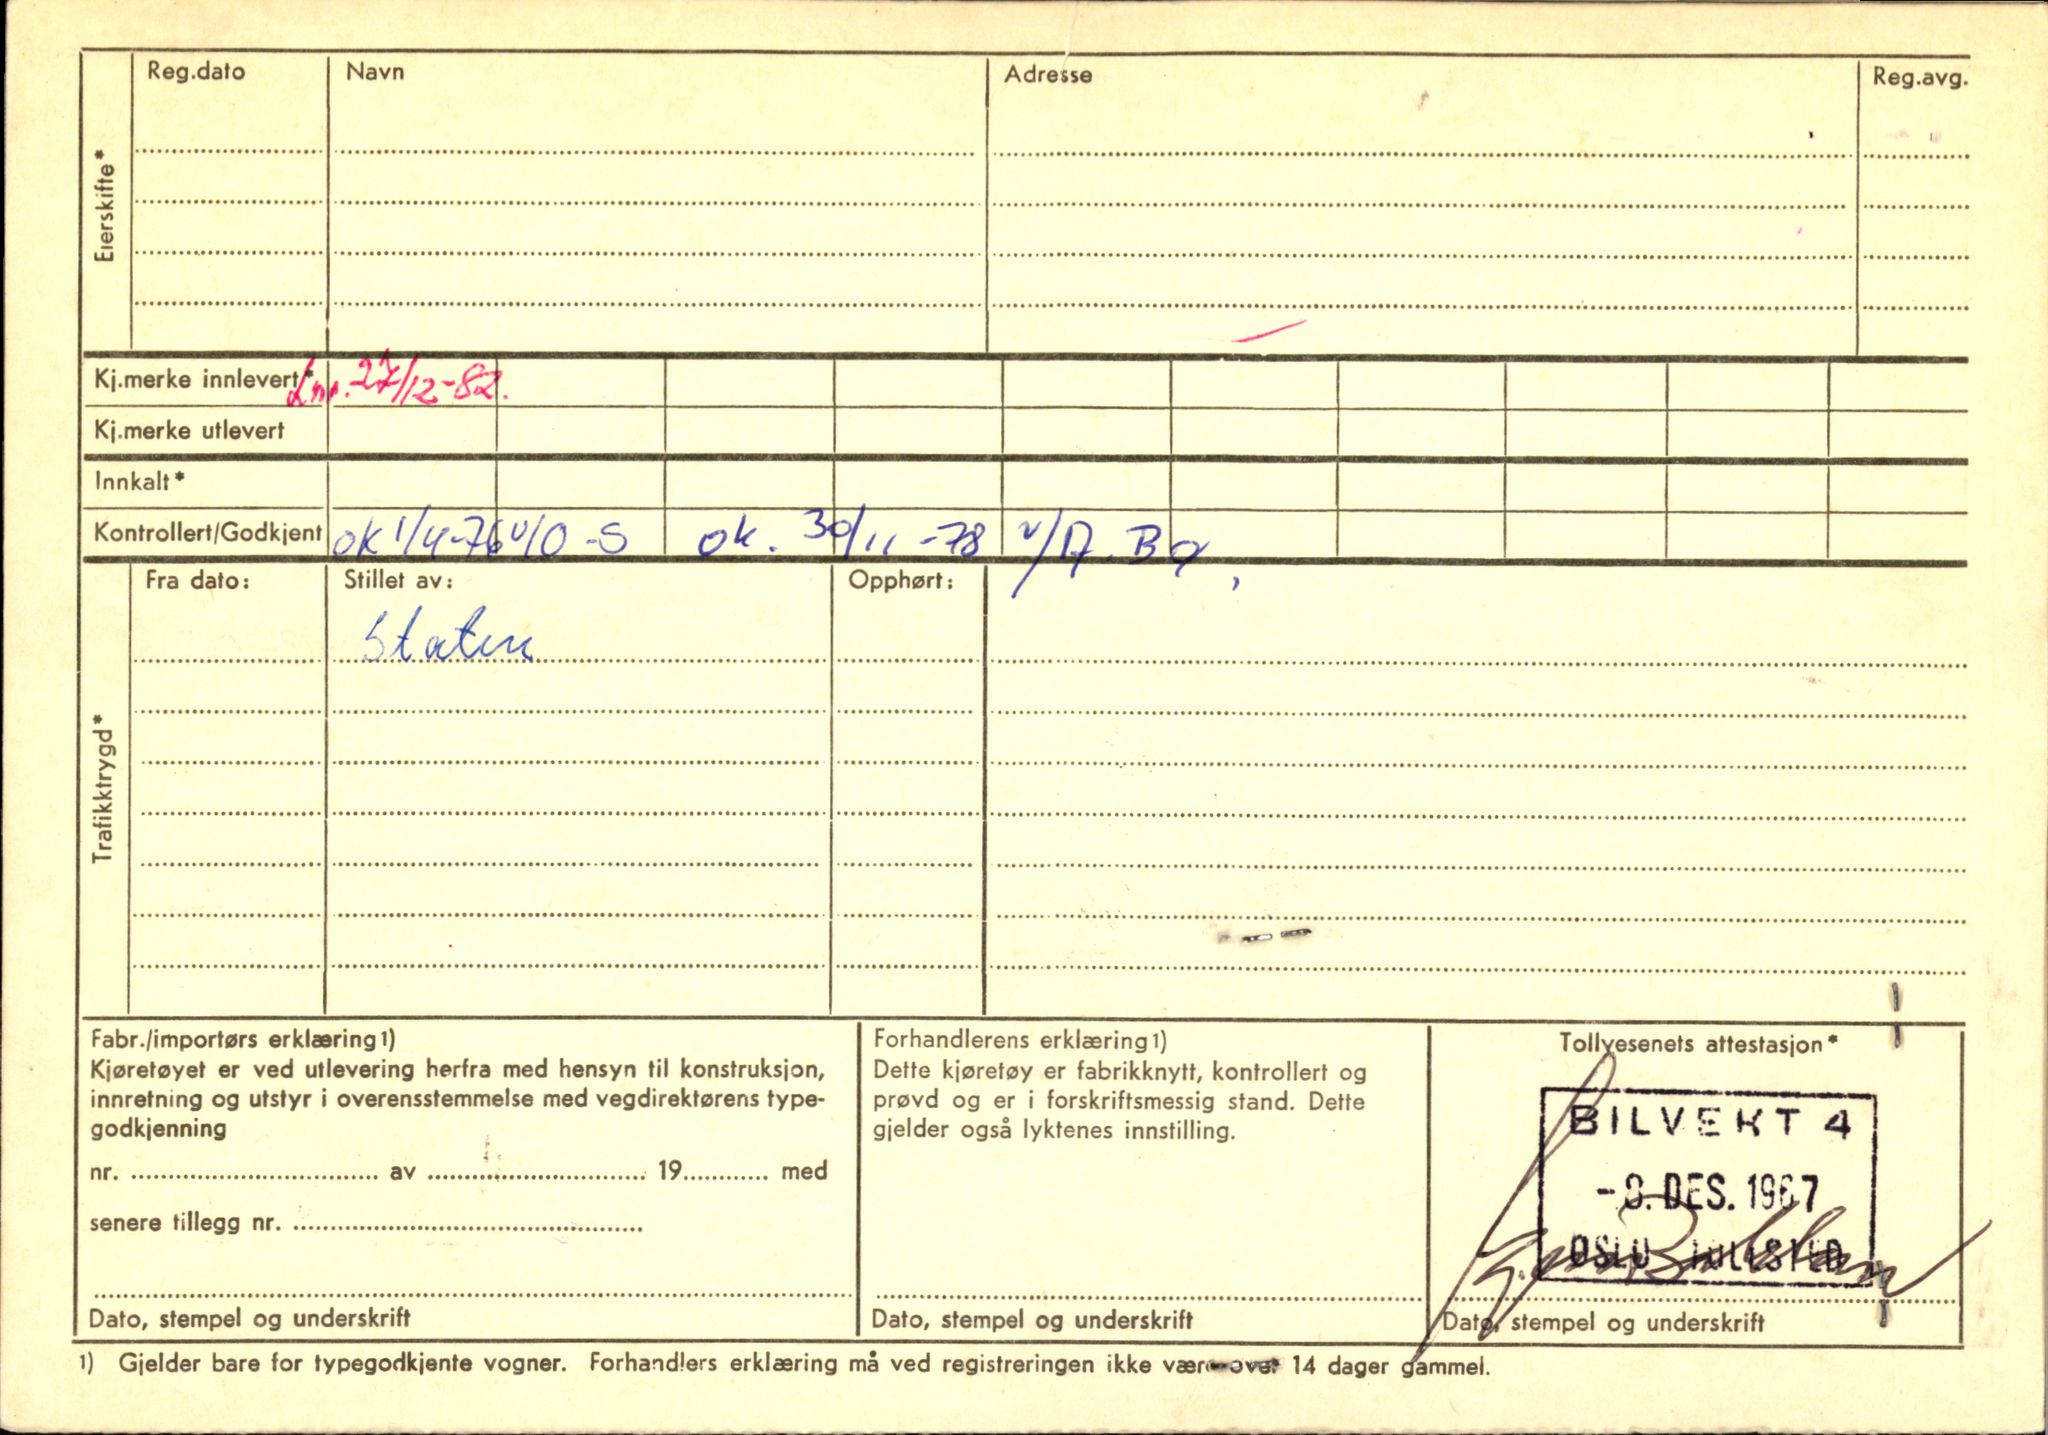 Reg.dato Navn Adresse Reg.avg.
Eierskifte*
Kj.merke innlevert* Lnr. 27/12-82.
Kj.merke utlevert
Innkalt*
Kontrollert/Godkjent ok 1/4-76 v/O-S ok. 30/11-78 v/A. Bø.
Fra dato: Stillet av: Opphørt:
Staten
Trafikktrygd*
Fabr./importørs erklæring1)
Kjøretøyet er ved utlevering herfra med hensyn til konstruksjon,
innretning og utstyr i overensstemmelse med vegdirektørens type-
godkjenning
nr. av 19 med
senere tillegg nr.
Dato, stempel og underskrift
Forhandlerens erklæring1)
Dette kjøretøy er fabrikknytt, kontrollert og
prøvd og er i forskriftsmessig stand. Dette
gjelder også lyktenes innstilling.
Dato, stempel og underskrift
Tollvesenets attestasjon*
BILVEKT 4
-8. DES. 1967
OSLO TOLLSTED
Dato, stempel og underskrift
1) Gjelder bare for typegodkjente vogner. Forhandlers erklæring må ved registreringen ikke være over 14 dager gammel.